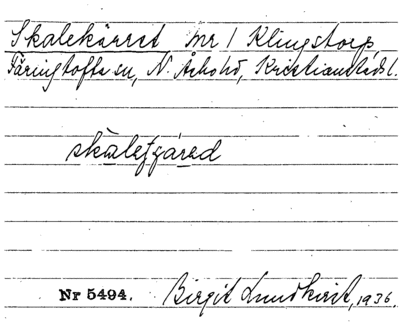 Skalekärret, mr 1 Klingstorp
Färingtofta sn, N. Åsbohd, Kristianstads l.
skalefzäred
Nr 5494. Birgit Lundkvist, 1936.